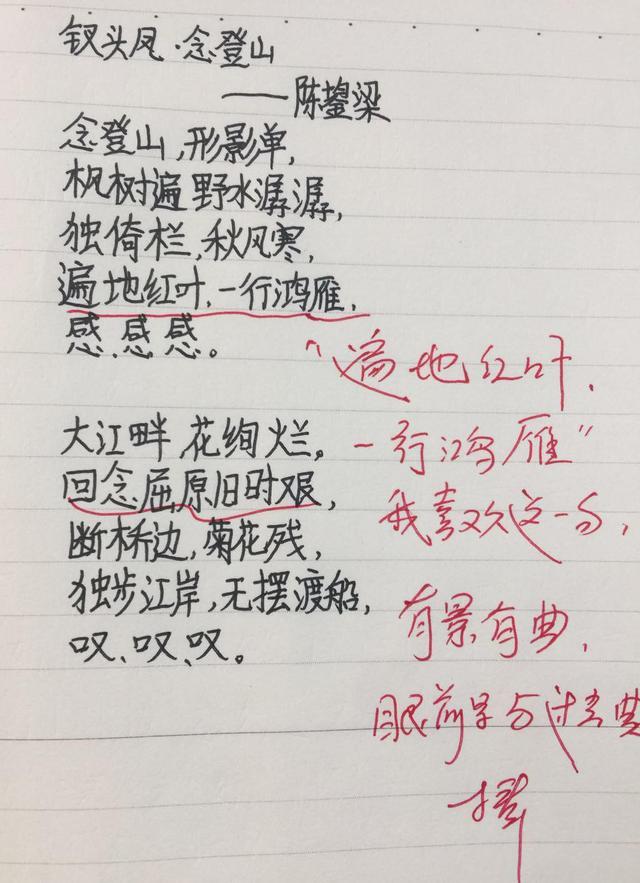 钗头凤·念登山
——陈鋆梁
念登山,形影单,
枫树遍野水潺潺,
独倚栏,秋风寒,
遍地红叶,一行鸿雁,
感、感、感。
大江畔,花绚烂。
回念屈原旧时艰,
断桥边,菊花残,
独步江岸,无摆渡船,
叹、叹、叹。
“遍地红叶,
一行鸿雁”
我喜欢这一句,
有景有典,
眼前景与过去典